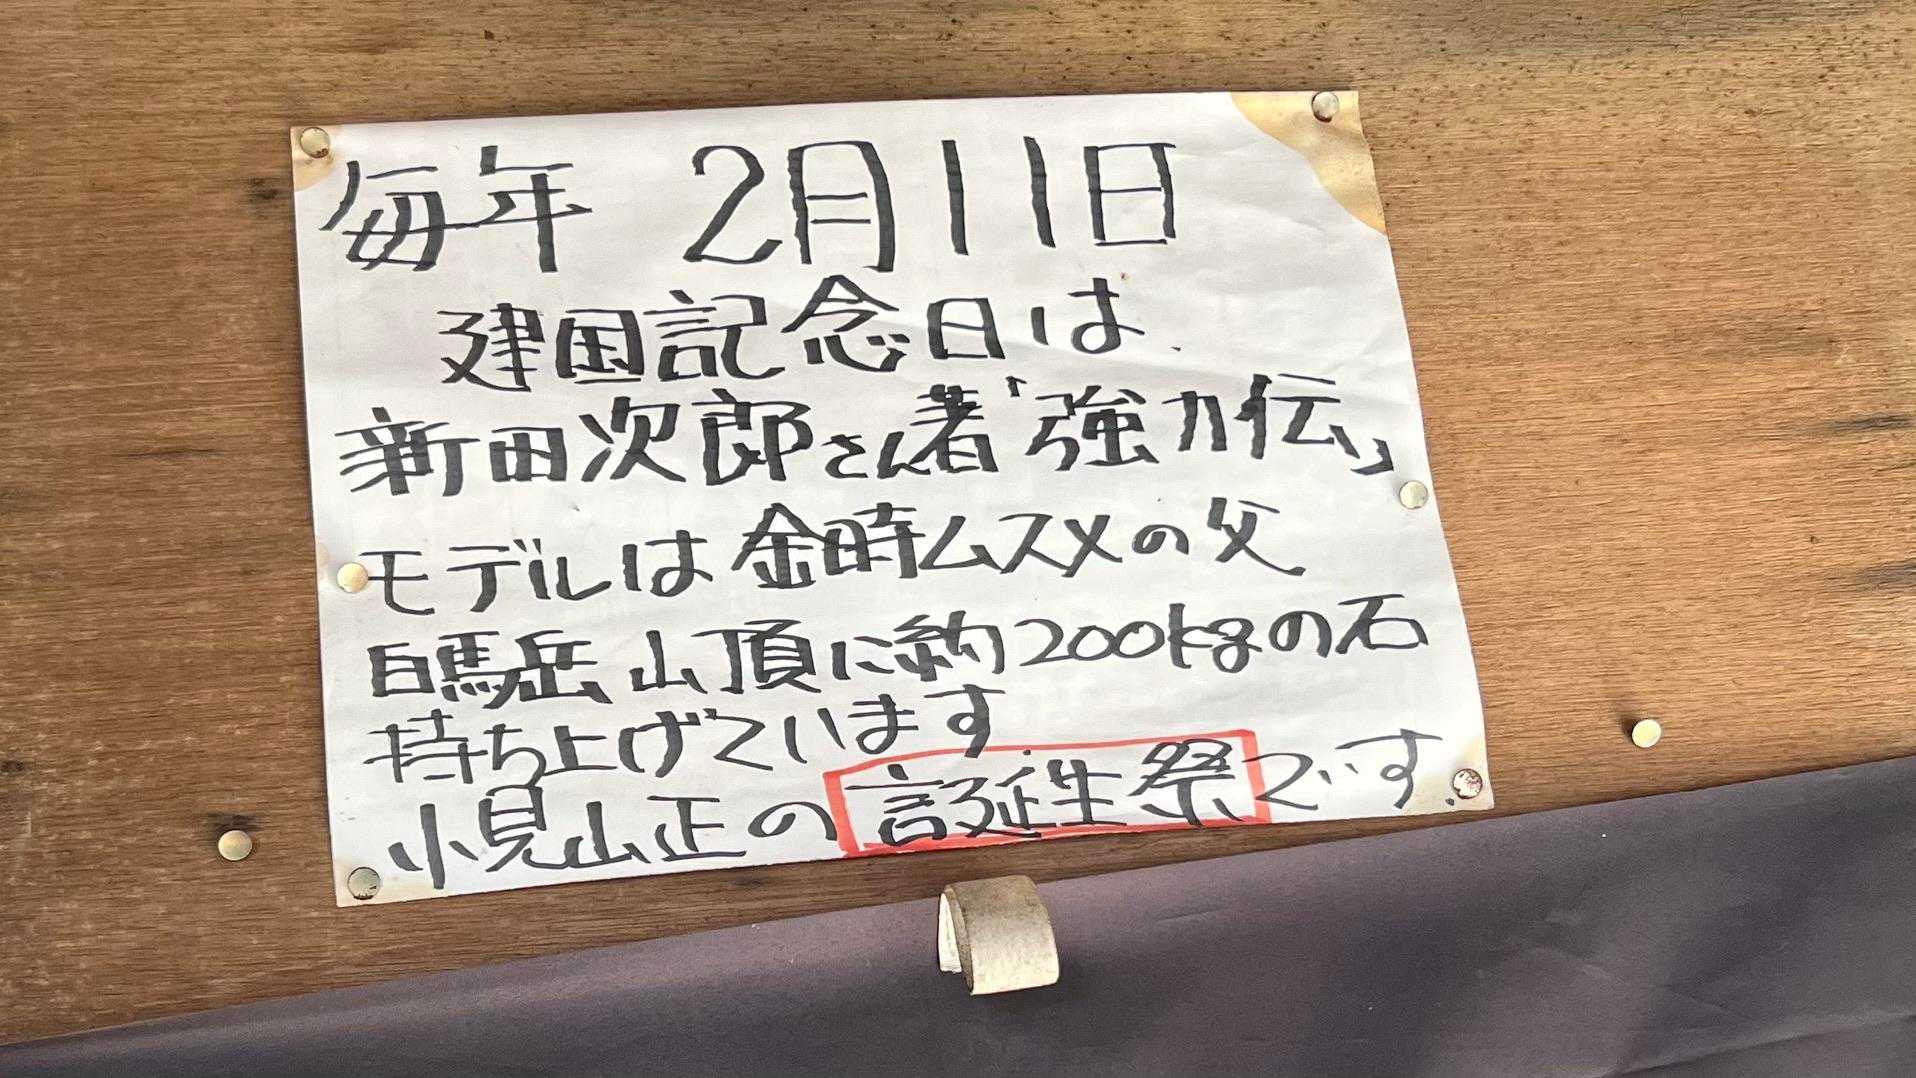 毎年 2月11日
建国記念日は
新田次郎さん著「強力伝」
モデルは金時ムスメの父
白馬岳山頂に約200kgの石
持ち上げています
小見山正の誕生祭です.